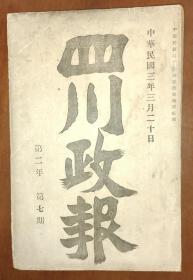 中華民國三年三月二十日
四川政報
第二年 第七期